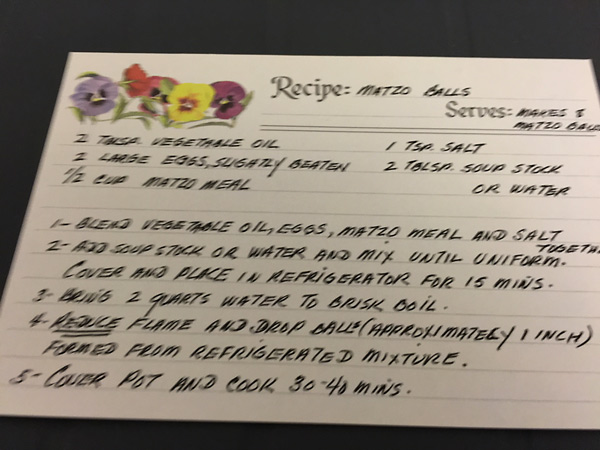 Recipe: MATZO BALLS
Serves: MAKES 8
MATZO BALLS
2 TBLSP. VEGETABLE OIL
1 TSP. SALT
2 LARGE EGGS, SLIGHTLY BEATEN
2 TBLSP. SOUP STOCK
1/2 CUP MATZO MEAL
OR WATER
1- BLEND VEGETABLE OIL, EGGS, MATZO MEAL AND SALT
TOGETHE
2- ADD SOUP STOCK OR WATER AND MIX UNTIL UNIFORM.
COVER AND PLACE IN REFRIGERATOR FOR 15 MINS.
3- BRING 2 QUARTS WATER TO BRISK BOIL.
4- REDUCE FLAME AND DROP BALLS (APPROXIMATELY 1 INCH)
FORMED FROM REFRIGERATED MIXTURE.
5- COVER POT AND COOK 30-40 MINS.